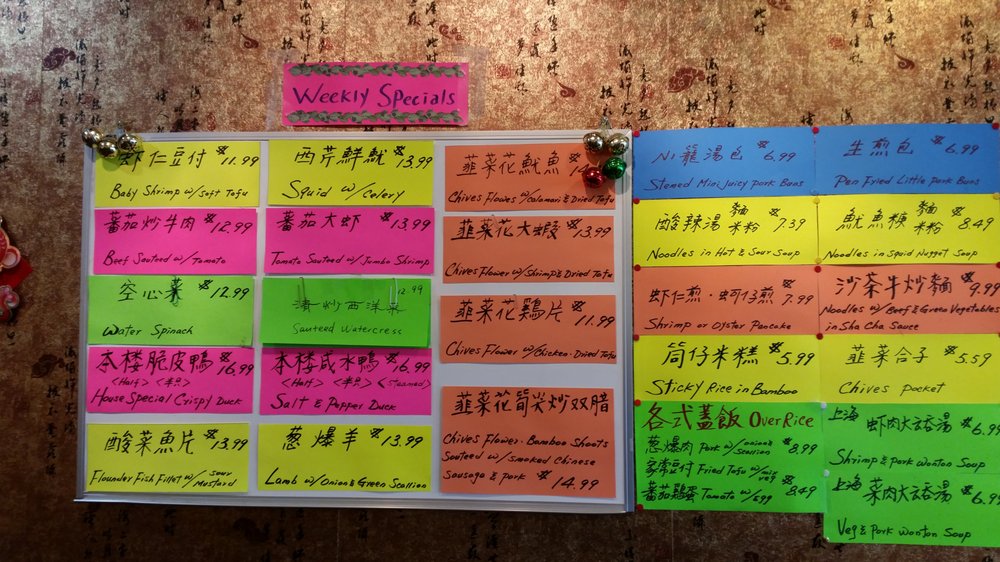 Weekly Specials
虾仁豆付 $11.99
Baby Shrimp w/ Soft Tofu
西芹鮮魷 $13.99
Squid w/ Celery
蕃茄炒牛肉 $12.99
Beef Sauteed w/ Tomato
蕃茄大虾 $13.99
Tomato Sauteed w/ Jumbo Shrimp
空心菜 $12.99
Water Spinach
清炒西洋菜 12.99
Sauteed Watercress
本楼脆皮鴨 $16.99
<Half> <半只>
House Special Crispy Duck
本楼咸水鴨 $16.99
<Half> <半只> <Steamed>
Salt & Pepper Duck
酸菜魚片 $13.99
Flounder Fish Fillet w/ Sour Mustard
葱爆羊 $13.99
Lamb w/ Onion & Green Scallion
韮菜花魷魚
Chives Flower w/ Calamari & Dried Tofu
韮菜花大蝦 $13.99
Chives Flower w/ Shrimp & Dried Tofu
韮菜花鷄片 $11.99
Chives Flower w/ Chicken. Dried Tofu
韮菜花筍尖炒双腊
Chives Flower. Bamboo Shoots
Sauteed w/ Smoked Chinese
Sausage & Pork $14.99
小籠湯包 $6.99
Stemed Mini Juicy Pork Buns
生煎包 $6.99
Pen Fried Little Pork Buns
酸辣湯麵米粉 $7.39
Noodles in Hot & Sour Soup
魷魚羹麵米粉 $8.49
Noodles in Squid Nugget Soup
虾仁煎·蚵仔煎 $7.99
Shrimp or Oyster Pancake
沙茶牛炒麵 $9.99
Noodles w/ Beef & Green Vegetables
in Sha Cha Sauce
筒仔米糕 $5.99
Sticky Rice in Bamboo
韮菜合子 $5.59
Chives Pocket
各式蓋飯 Over Rice
葱爆肉 Pork w/ onion & Scallion $8.99
家常豆付 Fried Tofu w/ mix veg
蕃茄鷄蛋 Tomato w/ egg $8.49
上海 虾肉大云吞湯 $6.99
Shrimp & Pork Wonton Soup
上海 菜肉大云吞湯 $6.99
Veg & Pork Wonton Soup